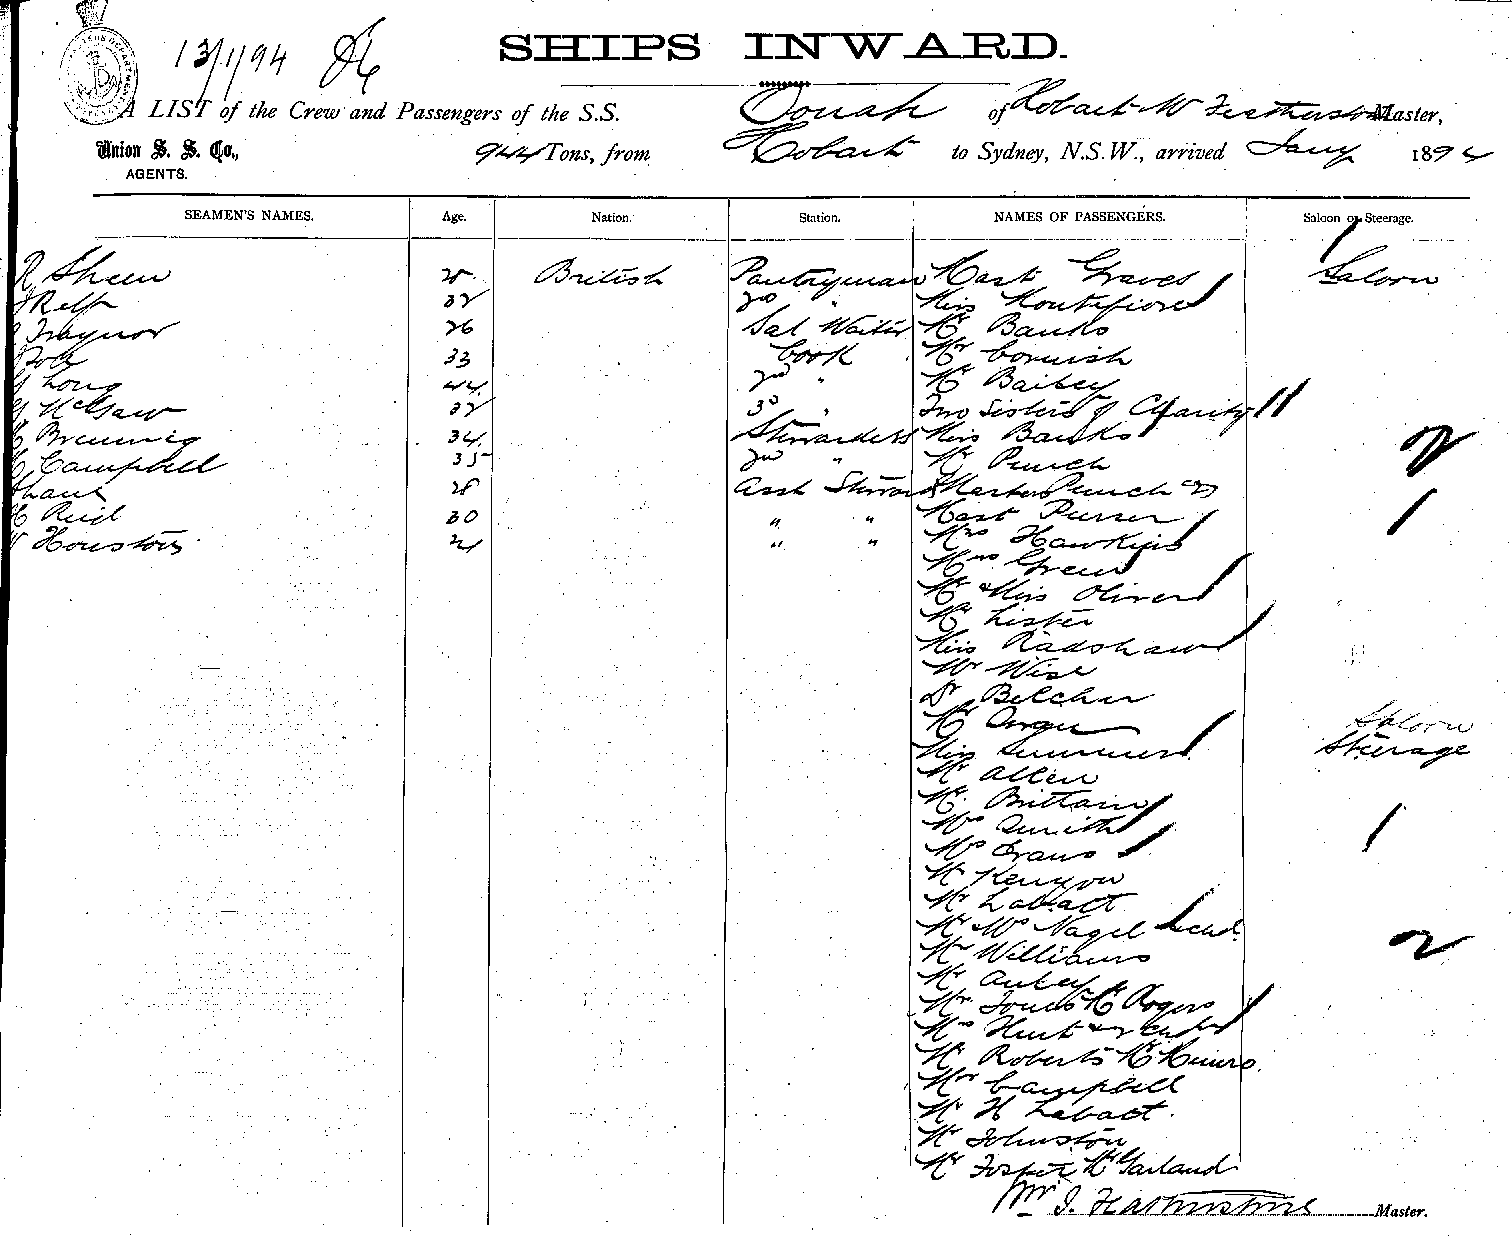 13/1/94
SHIPS INWARD.
A LIST of the Crew and Passengers of the S.S. Oonah of Hobart W Featherstone Master,
Union S. S. Co., 944 Tons, from Hobart to Sydney, N.S.W., arrived Jany 1894
AGENTS.
SEAMEN'S NAMES. Age. Nation. Station. NAMES OF PASSENGERS. Saloon or Steerage.
R Sheen 28 British Pantryman Mast Graves Saloon
Relf 32 2nd " Miss Montefiore
Traynor 26 Sal Waiter Mr Banks
33 Cook Mr Cornish
Long 44 2nd " Mr Bailey
McGaw 32 3d " Two Sisters of Charity
34 Stewardess Miss Banks
Campbell 35 2nd " Mr Punch
28 Asst Steward Masters Punch 2
Reid 30 " " Mast Purser
Houston 21 " " Mrs Hawkins
Mrs Green
Mr & Miss Oliver
Mr Lister
Miss Radshaw
Mr Wise
Dr Belcher
Mr
Miss Summers Saloon
Mr Allen Steerage
Mr Brittain
Mrs Smith
Mrs Evans
Mr Kenyon
Mr Labatt
Mr Mrs Nagel
Mr Williams
Mr
Mr Jones Mr Rogers
Mrs Hunt & 2 ch
Mr Roberts Mr Munro
Mr Campbell
Mr H Labatt
Mr Johnston
Mr Foster Mr Garland
Wm J. Featherstone Master.